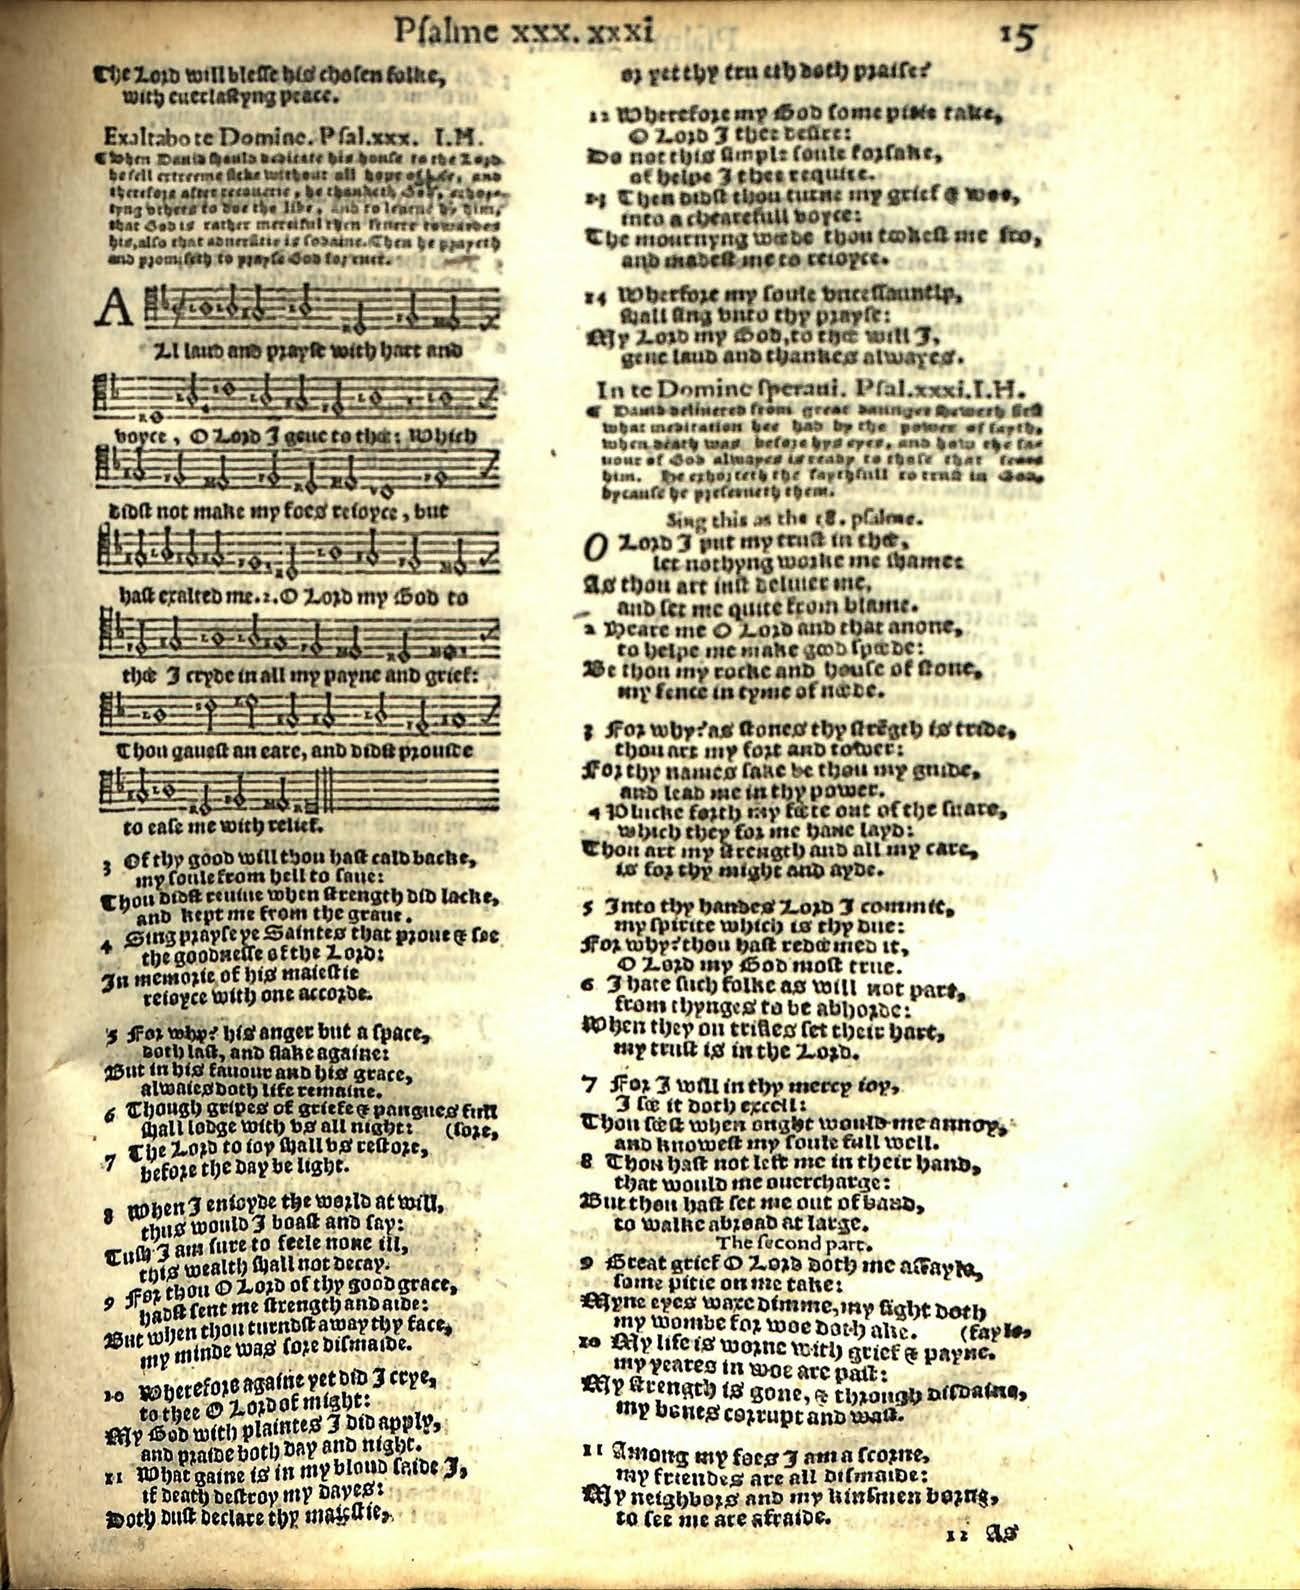 Psalme xxx. xxxi
15
The Lord will blesse his chosen folke,
with euerlastyng peace.
Exaltabo te Domine. Psal.xxx. I.M.
¶ When Dauid should dedicate his house to the Lord
he fell extreeme sicke without all hope of life, and
therefore after recouerie, he thanketh God, exhor-
tyng others to doe the like, and to learne by him,
that God is rather merciful then seuere towardes
his, also that aduersitie is sodaine. Then he prayeth
and promiseth to prayse God for euer.
A
Ll laud and prayse with hart and
voyce, O Lord I geue to thee: Which
didst not make my foes reioyce, but
hast exalted me.2.O Lord my God to
thee I cryde in all my payne and grief:
Thou gauest an eare, and didst prouide
to ease me with relief.
3 Of thy good will thou hast cald backe,
my soule from hell to saue:
Thou didst reuiue when strength did lacke,
and kept me from the graue.
4 Sing prayse ye Saintes that proue & see
the goodnesse of the Lord:
In memorie of his maiestie
reioyce with one accorde.
5 For why? his anger but a space,
doth last, and slake againe:
But in his fauour and his grace,
alwaies doth life remaine.
6 Though gripes of griefe & pangues full
shall lodge with vs all night: (sore,
7 The Lord to ioy shall vs restore,
before the day be light.
8 When I enioyde the world at will,
thus would I boast and say:
Tush I am sure to feele none ill,
this wealth shall not decay.
9 For thou O Lord of thy good grace,
hadst sent me strength and aide:
But when thou turndst away thy face,
my minde was sore dismaide.
10 Wherefore againe yet did I crye,
to thee O Lord of might:
My God with plaintes I did apply,
and praide both day and night.
11 What gaine is in my bloud saide I,
if death destroy my dayes:
Doth dust declare thy maiestie,
or yet thy trueth doth praise?
12 Wherefore my God some pitie take,
O Lord I thee desire:
Do not this simple soule forsake,
of helpe I thee require.
13 Then didst thou turne my grief & woe,
into a chearefull voyce:
The mournyng weede thou tookest me fro,
and madest me to reioyce.
14 Wherfore my soule vncessauntly,
shall sing vnto thy prayse:
My Lord my God, to thee will I,
geue laud and thankes alwayes.
In te Domine speraui. Psal.xxxi.I.H.
¶ Dauid deliuered from great daunger sheweth first
what meditation hee had by the power of fayth,
when death was before hys eyes, and how the fa-
uour of God alwayes is ready to those that feare
him. He exhorteth the faythfull to trust in God,
bycause he preserueth them.
Sing this as the 18. psalme.
O Lord I put my trust in thee,
let nothyng worke me shame:
As thou art iust deliuer me,
and set me quite from blame.
2 Heare me O Lord and that anone,
to helpe me make good speede:
Be thou my rocke and house of stone,
my fence in tyme of neede.
3 For why? as stones thy strēgth is tride,
thou art my fort and tower:
For thy names sake be thou my guide,
and lead me in thy power.
4 Plucke forth my feete out of the snare,
which they for me haue layd:
Thou art my strength and all my care,
is for thy might and ayde.
5 Into thy handes Lord I commit,
my spirite which is thy due:
For why? thou hast redeemed it,
O Lord my God most true.
6 I hate such folke as will not part,
from thynges to be abhorde:
When they on trifles set their hart,
my trust is in the Lord.
7 For I will in thy mercy ioy,
I see it doth excell:
Thou seest when ought would me annoy,
and knowest my soule full well.
8 Thou hast not left me in their hand,
that would me ouercharge:
But thou hast set me out of band,
to walke abroad at large.
The second part.
9 Great grief O Lord doth me assayle,
some pitie on me take:
Myne eyes waxe dimme, my sight doth
my wombe for woe doth ake. (fayle,
10 My life is worne with grief & payne.
my yeares in woe are past:
My strength is gone, & through disdaine,
my bones corrupt and wast.
11 Among my foes I am a scorne,
my friendes are all dismaide:
My neighbors and my kinsmen borne,
to see me are afraide.
12 As